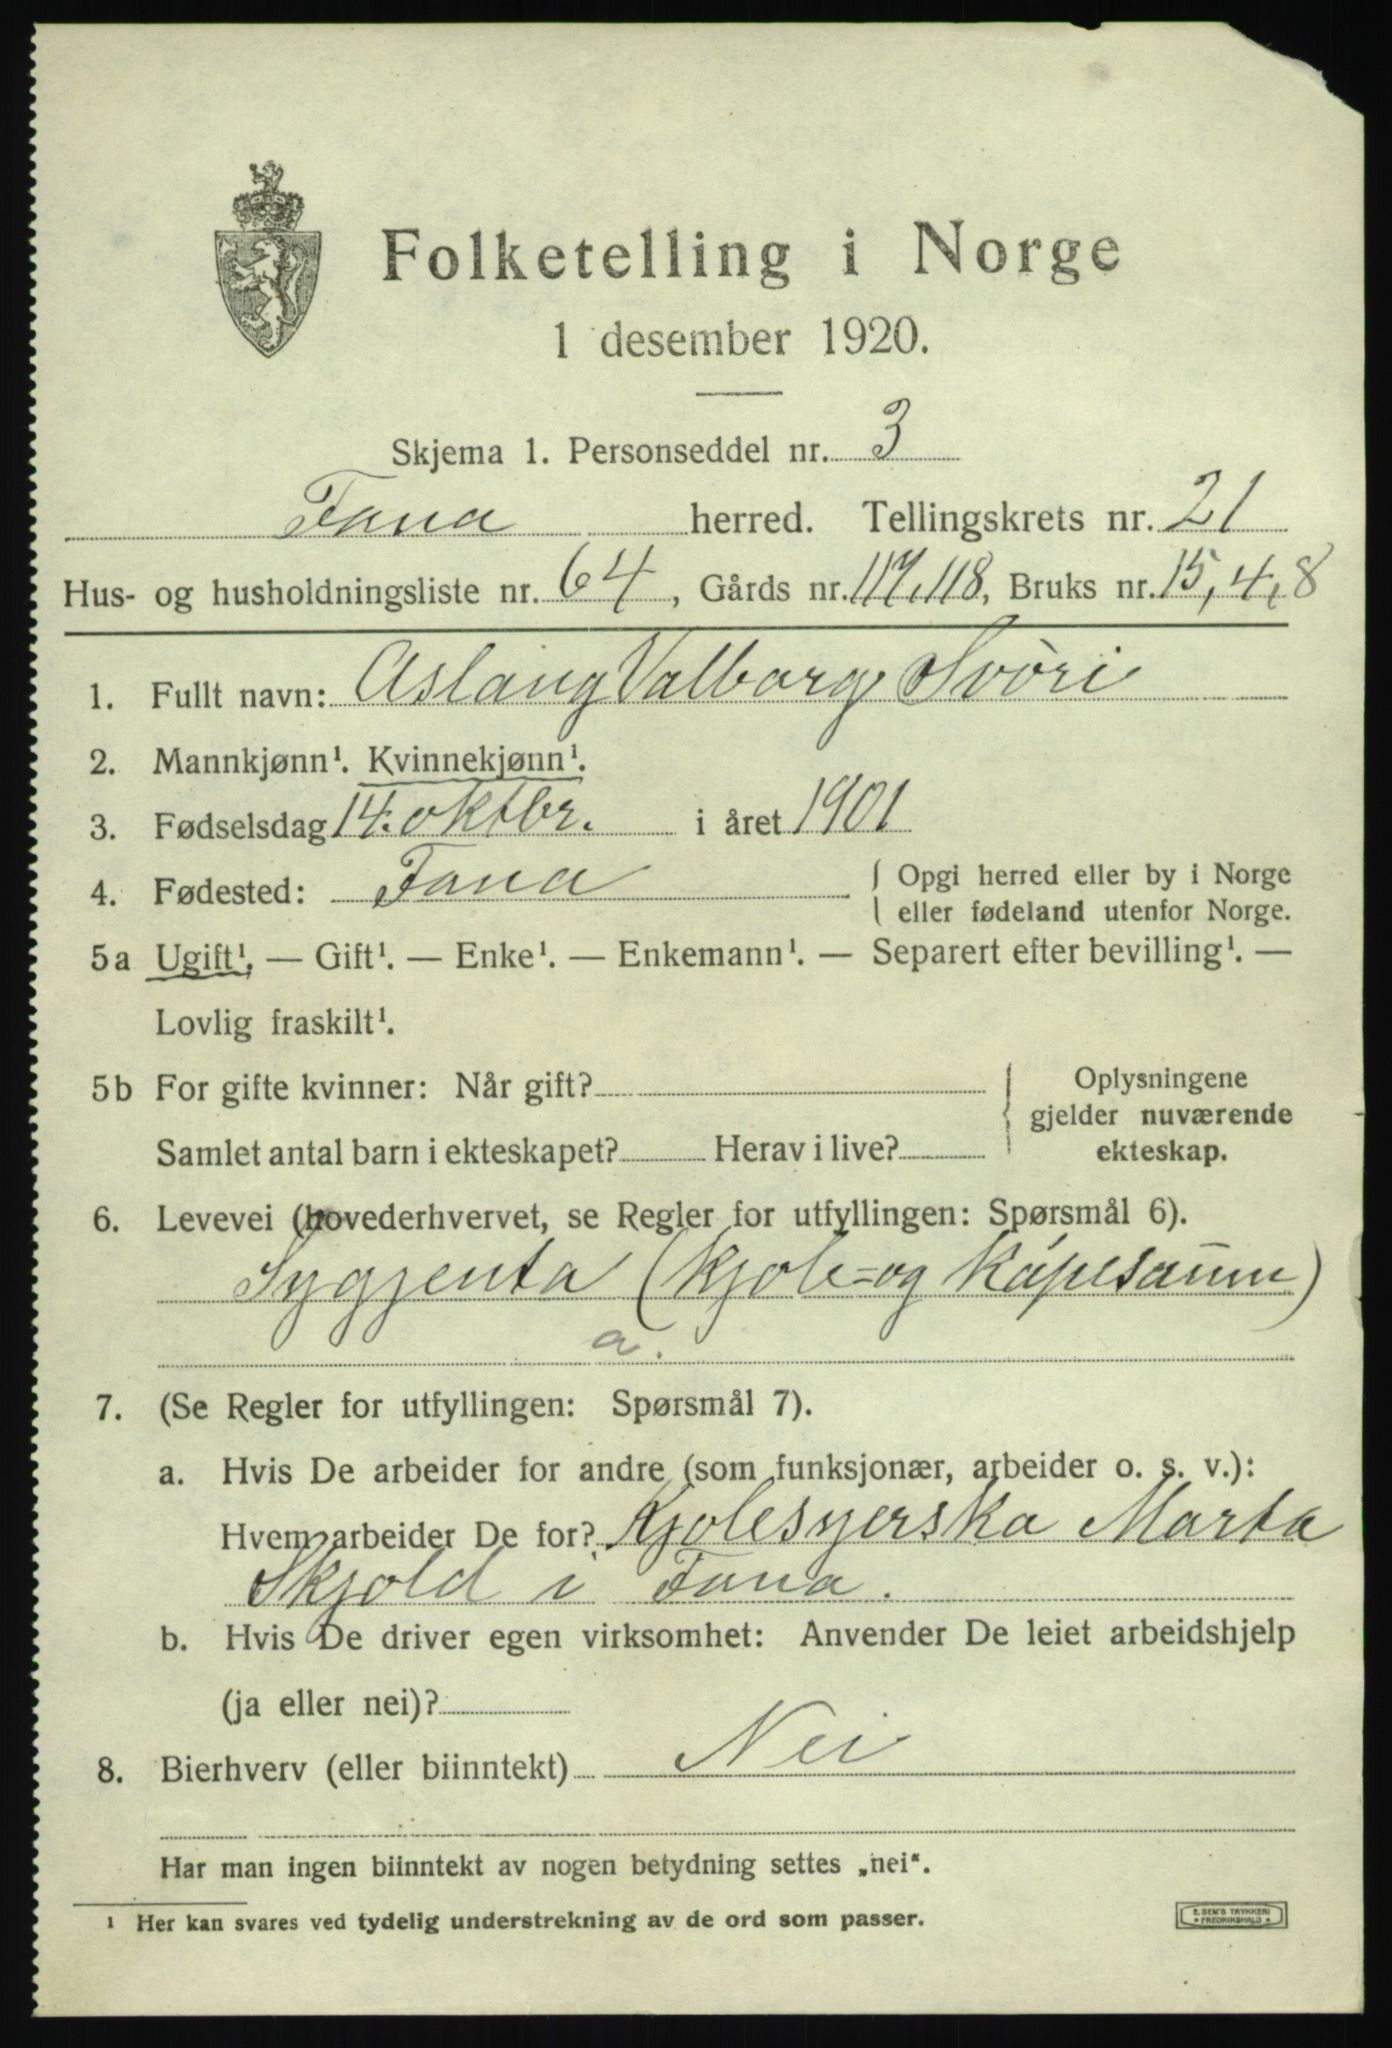 Folketelling i Norge
1 desember 1920.
Skjema 1. Personseddel nr. 3
Fana herred. Tellingskrets nr. 21
Hus- og husholdningsliste nr. 64, Gårds nr. 117, 118, Bruks nr. 15, 4, 8
1. Fullt navn: Aslaug Valborg Svöri
2. Mannkjønn¹. Kvinnekjønn¹.
3. Fødselsdag 14. oktbr. i året 1901
4. Fødested: Fana { Opgi herred eller by i Norge
eller fødeland utenfor Norge.
5a Ugift¹. — Gift¹. — Enke¹. — Enkemann¹. — Separert efter bevilling¹. —
Lovlig fraskilt¹.
5b For gifte kvinner: Når gift? { Oplysningene
gjelder nuværende
Samlet antal barn i ekteskapet? Herav i live? ekteskap.
6. Levevei (hovederhvervet, se Regler for utfyllingen: Spørsmål 6).
Syggjenta (kjole- og kåpesaum)
a.
7. (Se Regler for utfyllingen: Spørsmål 7).
a. Hvis De arbeider for andre (som funksjonær, arbeider o. s. v.):
Hvem arbeider De for? Kjolesyerska Marta
Skjold i Fana.
b. Hvis De driver egen virksomhet: Anvender De leiet arbeidshjelp
(ja eller nei)?
8. Bierhverv (eller biinntekt) Nei
Har man ingen biinntekt av nogen betydning settes „nei“.
¹ Her kan svares ved tydelig understrekning av de ord som passer.
E. SEM'S TRYKKERI
* FREDRIKSHALD *